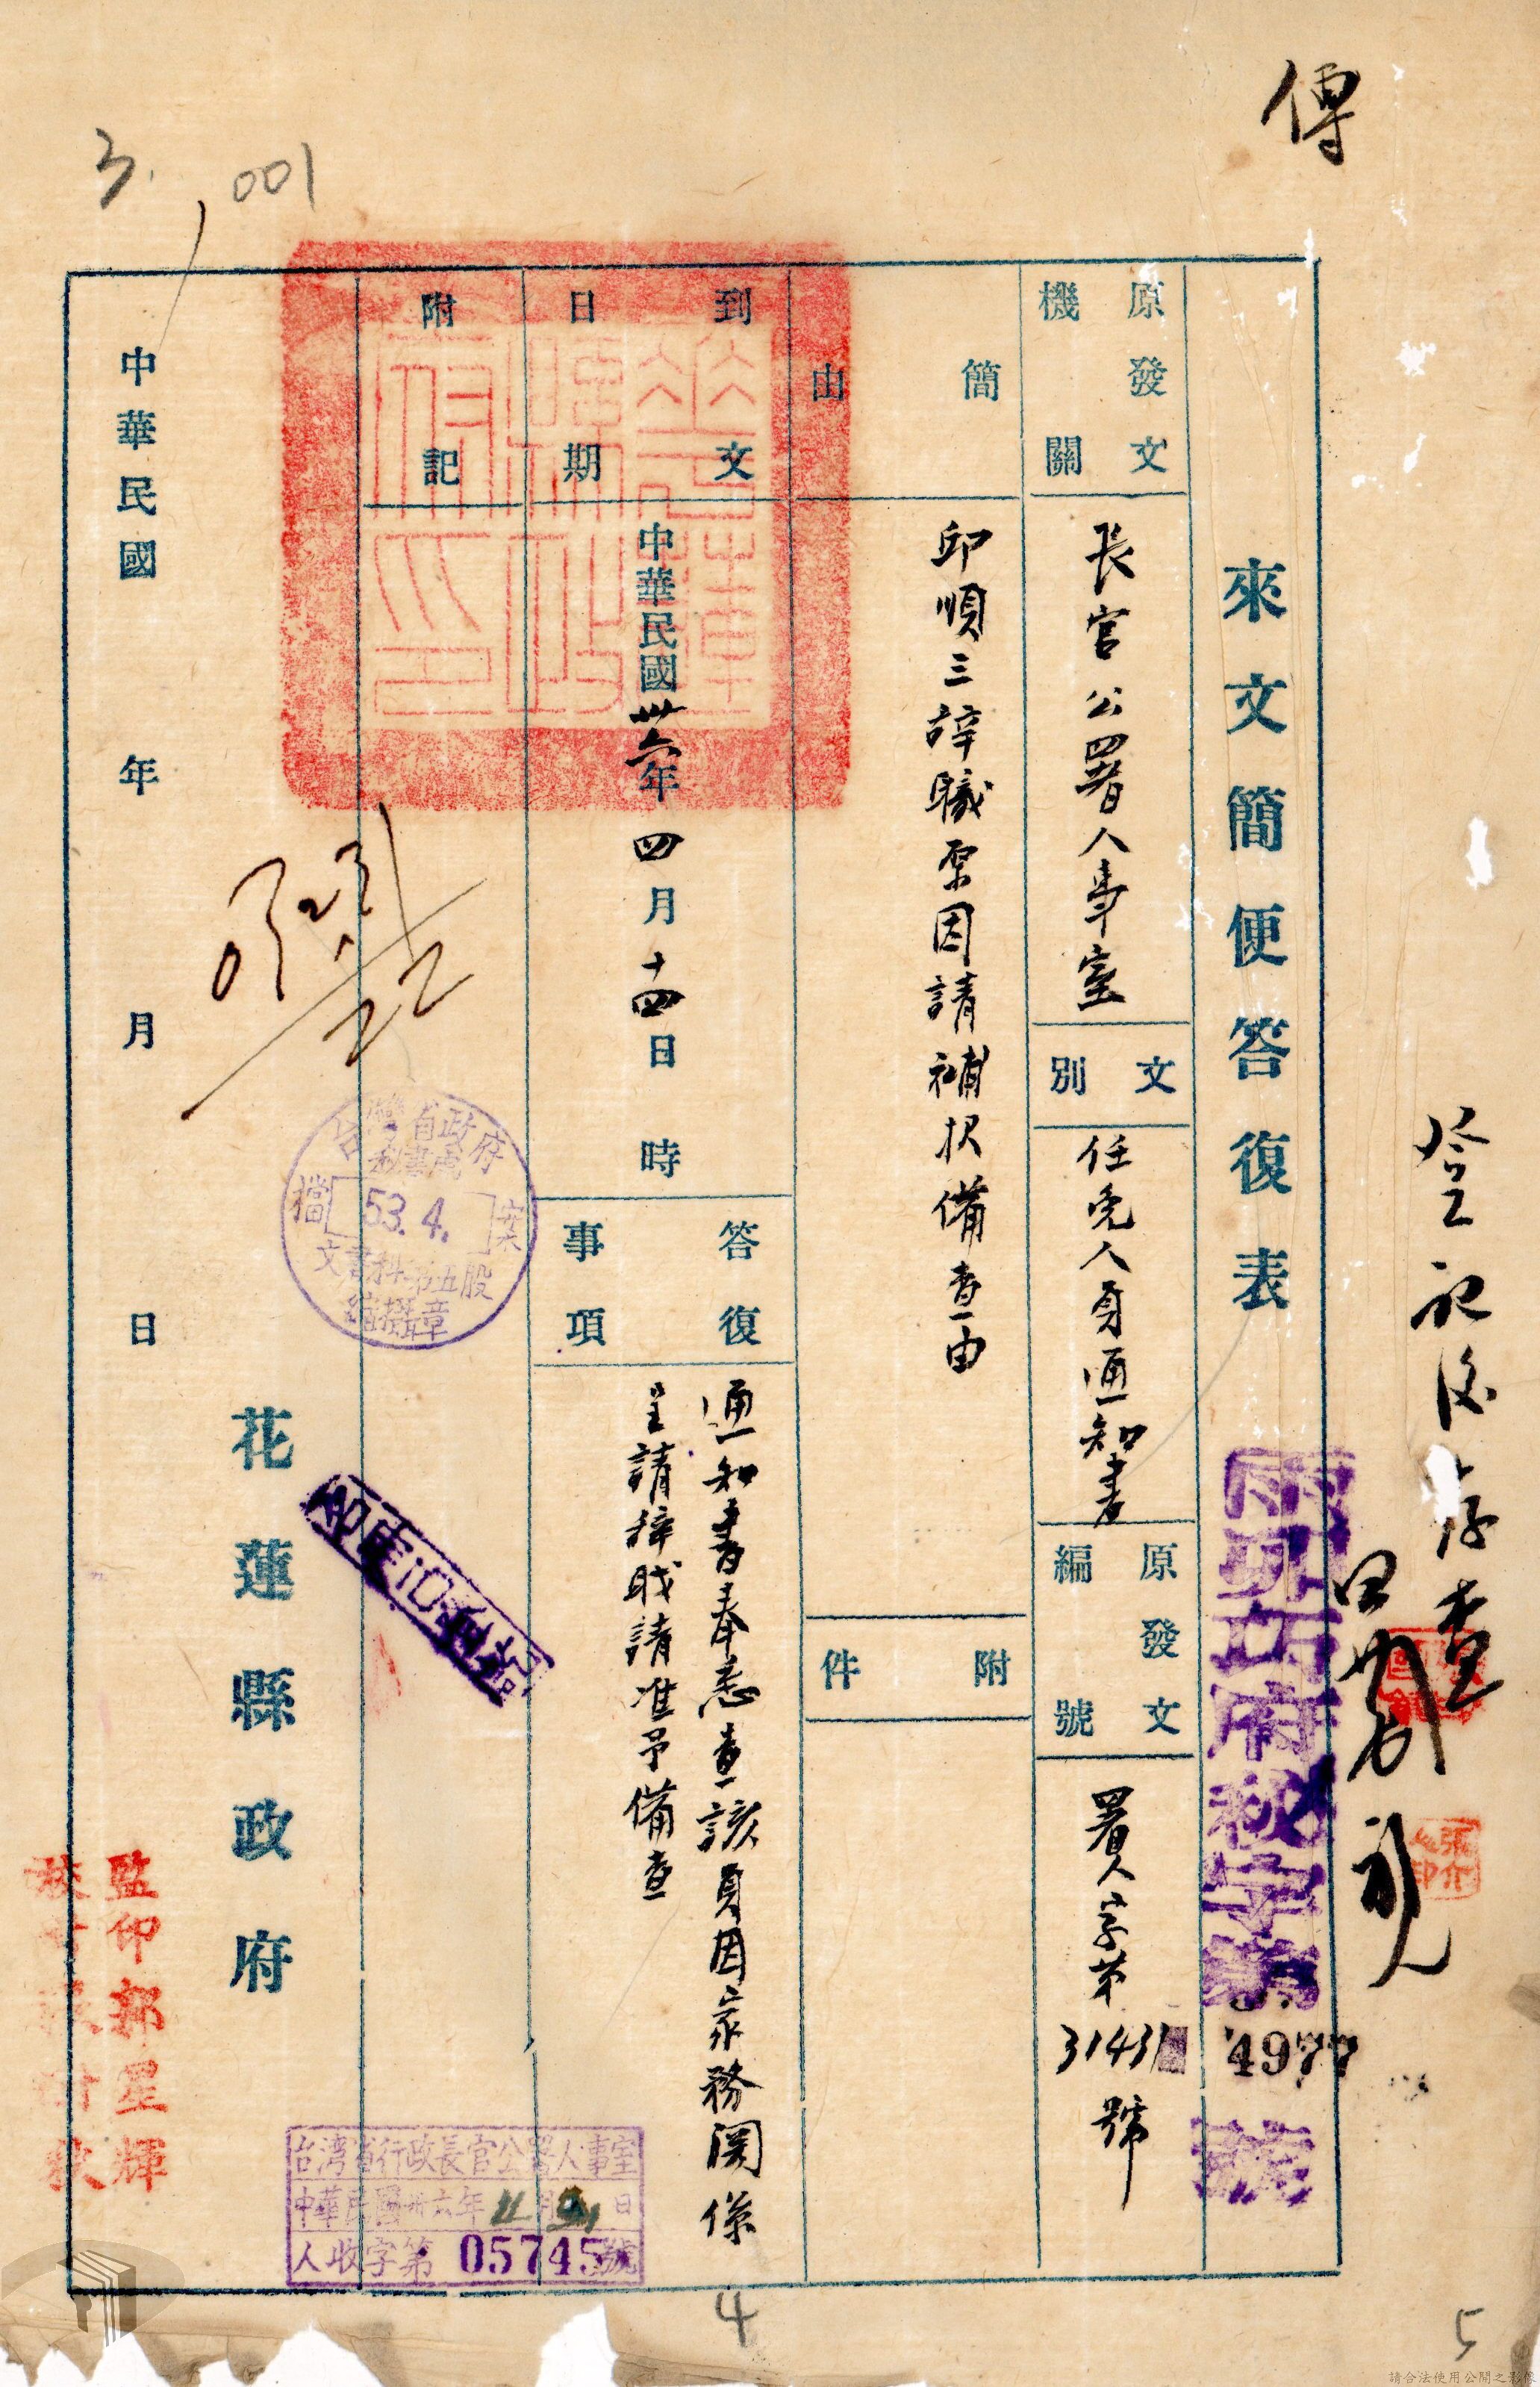 傅
3.
001
登記後存查
來文簡便答復表
4977
號
原發文機關
長官公署人事室
文別
任免人員通知書
原發文編號
署人字第31431號
簡由
邱順三辭職原因請補報備查由
附件
到文日期
中華民國卅六年四月十四日 時
答復事項
通知書奉悉查該員因家務関係
呈請辞职請准予備查
附記
台灣省政府
秘書處
檔 53.4. 案
文書科第五股
縮攝章
花蓮縣政府
中華民國 年 月 日
監印邵星輝
台湾省行政長官公署人事室
中華民國卅六年 月 日
人收字第 05745號
4
5
請合法使用公開之影像